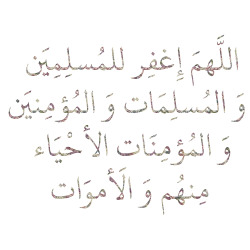 اللَّهمَ إغفِر للمُسلِمِيَن
وَ المُسلِمَات وَ المُؤمِنيَن
وَ المُؤمِنَات الأحْيَاء
مِنهُم وَ الَأموَات